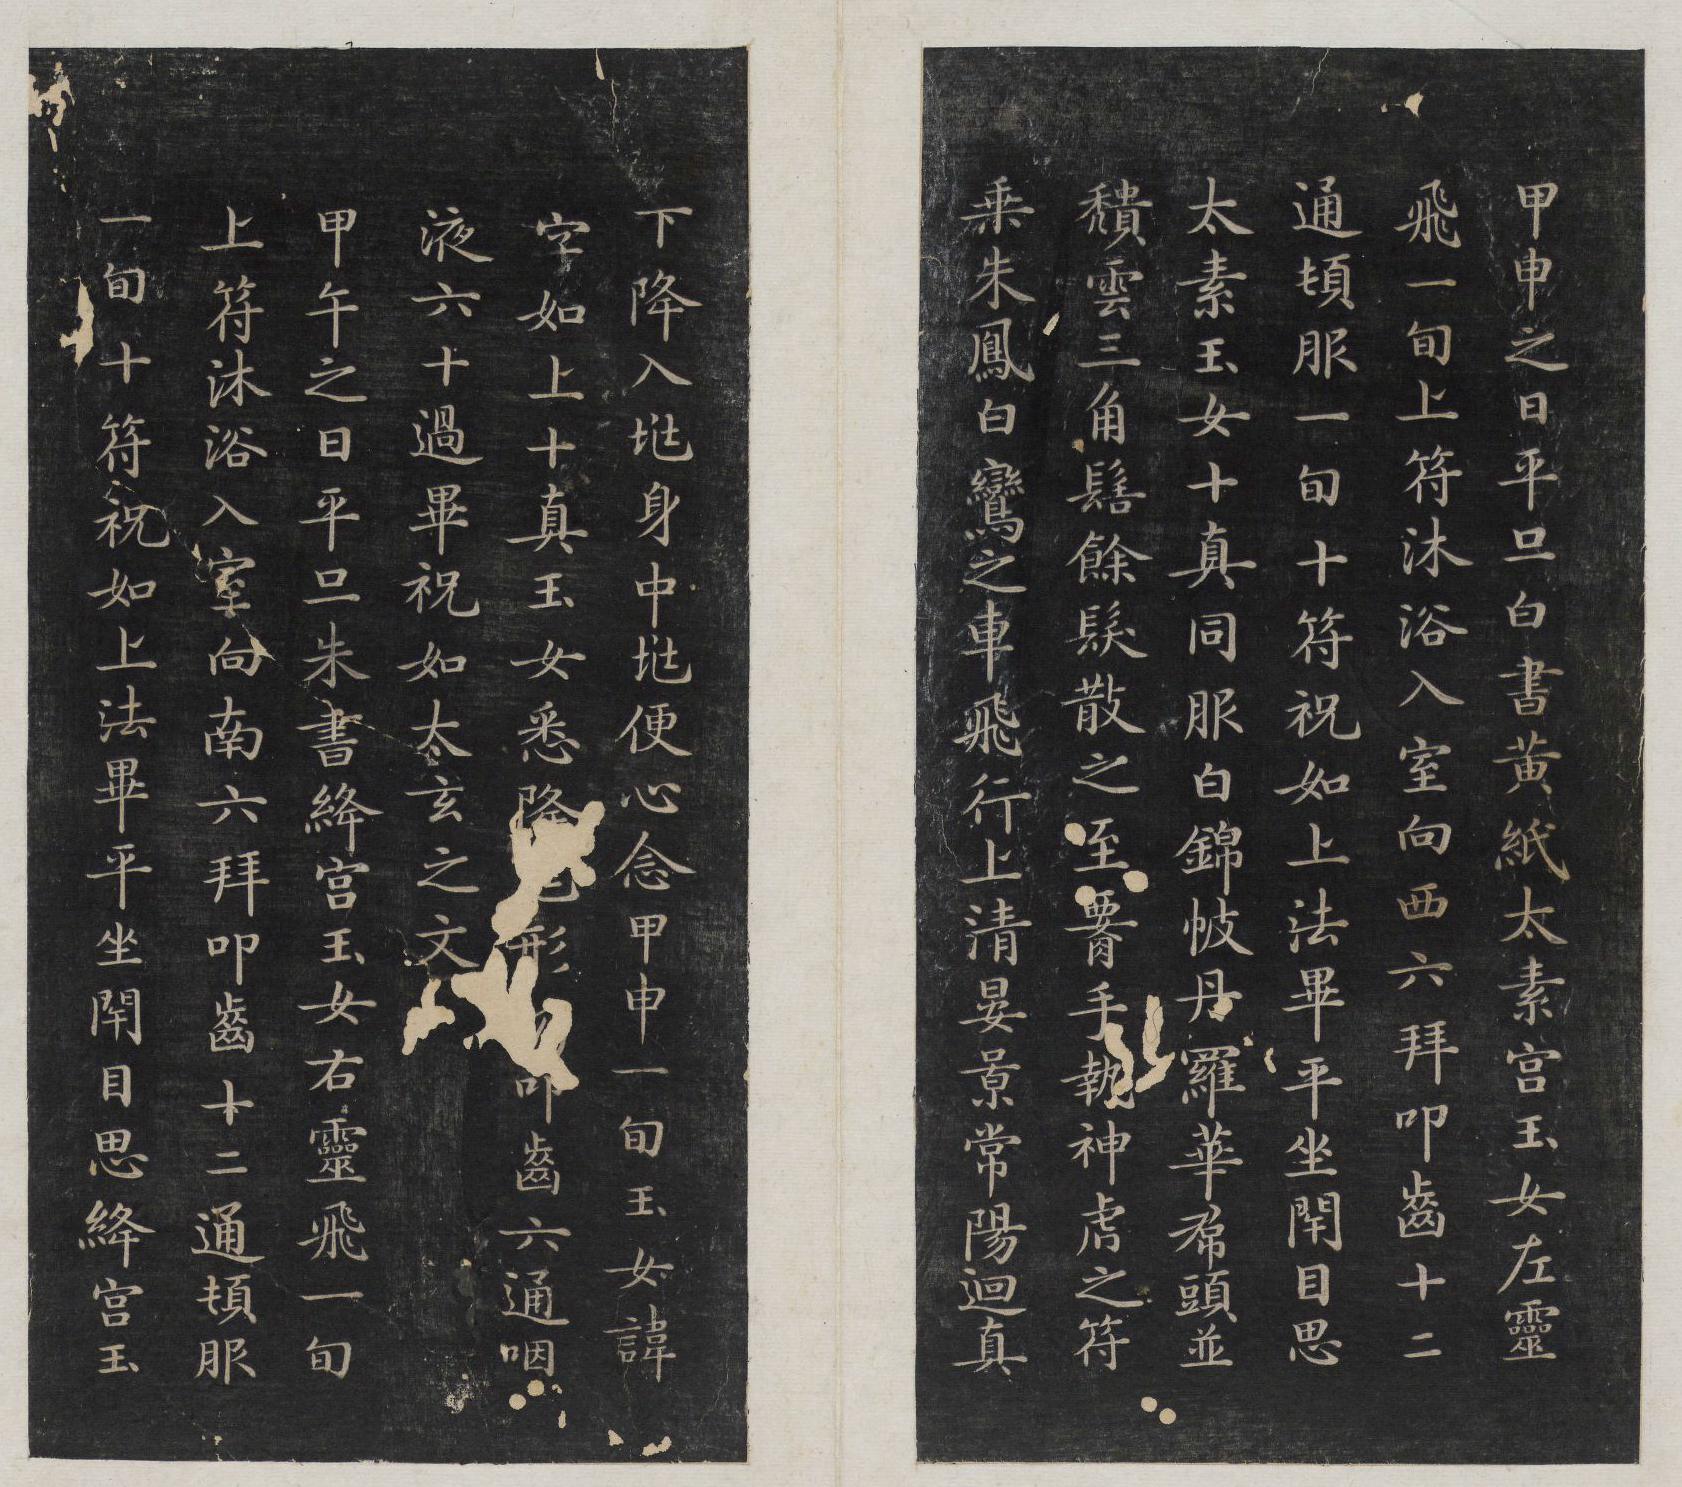 甲申之日平旦白書黄紙太素宫玉女左靈
飛一旬上符沐浴入室向西六拜叩齒十二
通頓服一旬十符祝如上法畢平坐閇目思
太素玉女十真同服白錦帔丹羅華帬頭並
頽雲三角髻餘髮散之至𦝫手執神虎之符
乗朱鳳白鸞之車飛行上清晏景常陽迴真
下降入兆身中兆便心念甲申一旬玉女諱
字如上十真玉女悉降形叩齒六通咽
液六十過畢祝如太玄之文
甲午之日平旦朱書絳宫玉女右靈飛一旬
上符沐浴入室向南六拜叩齒十二通頓服
一旬十符祝如上法畢平坐閇目思絳宫玉